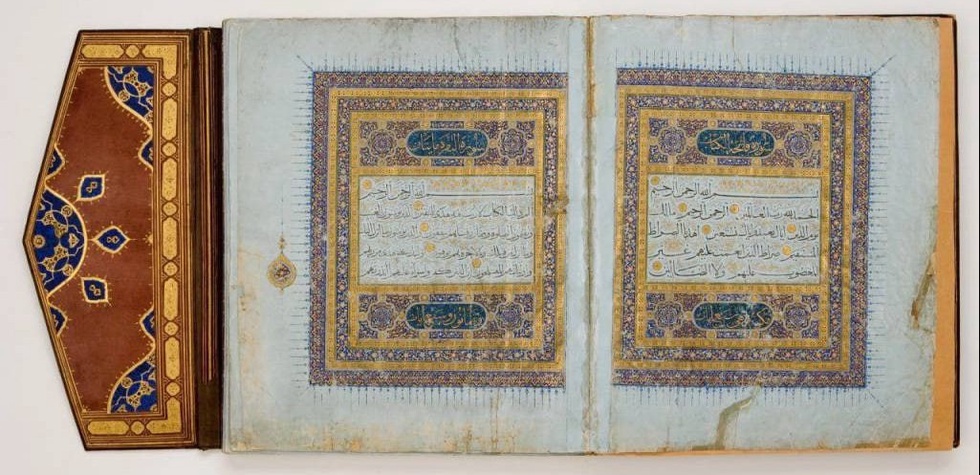 سورة فاتحة الكتاب
بسم الله الرحمن الرحيم
الحمد لله رب العالمين الرحمن الرحيم مالك
يوم الدين اياك نعبد واياك نستعين اهدنا الصراط
المستقيم صراط الذين انعمت عليهم غير
المغضوب عليهم ولا الضالين
سورة البقرة مايتان
بسم الله الرحمن الرحيم
الم ذلك الكتاب لا ريب فيه هدى للمتقين الذين يؤمنون بالغيب
ويقيمون الصلوة ومما رزقناهم ينفقون والذين يؤمنون بما انزل اليك
وما انزل من قبلك وبالاخرة هم يوقنون اولئك على هدى
من ربهم واولئك هم المفلحون ان الذين كفروا سواء عليهم